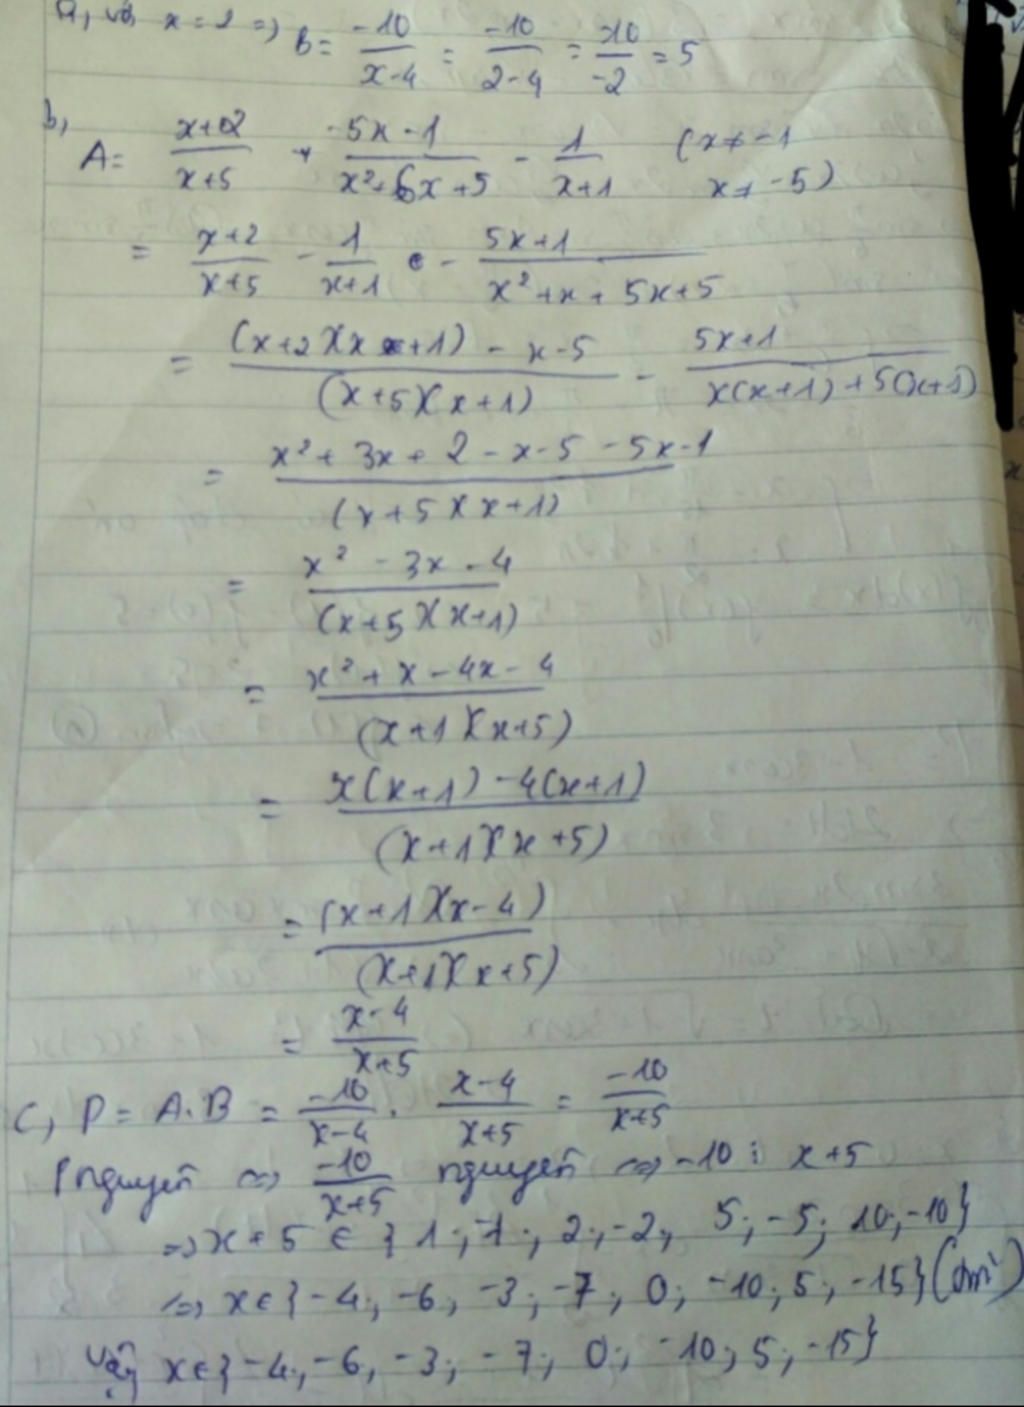 a, với x = 2 => B = -10/(x-4) = -10/(2-4) = -10/-2 = 5
b,
A = (x+2)/(x+5) + (-5x-1)/(x²+6x+5) - 1/(x+1) (x ≠ -1
x ≠ -5)
= (x+2)/(x+5) - 1/(x+1) - (5x+1)/(x²+x+5x+5)
= ((x+2)(x+1) - x-5)/((x+5)(x+1)) - (5x+1)/(x(x+1)+5(x+1))
= (x²+3x+2-x-5-5x-1)/((x+5)(x+1))
= (x²-3x-4)/((x+5)(x+1))
= (x²+x-4x-4)/((x+1)(x+5))
= (x(x+1)-4(x+1))/((x+1)(x+5))
= ((x+1)(x-4))/((x+1)(x+5))
= (x-4)/(x+5)
c, P = A.B = -10/(x-4) . (x-4)/(x+5) = -10/(x+5)
P nguyên <=> -10/(x+5) nguyên <=> -10 ⋮ x+5
=> x+5 ∈ {1; -1; 2; -2; 5; -5; 10; -10}
<=> x ∈ {-4; -6; -3; -7; 0; -10; 5; -15}
Vậy x ∈ {-4; -6; -3; -7; 0; -10; 5; -15}